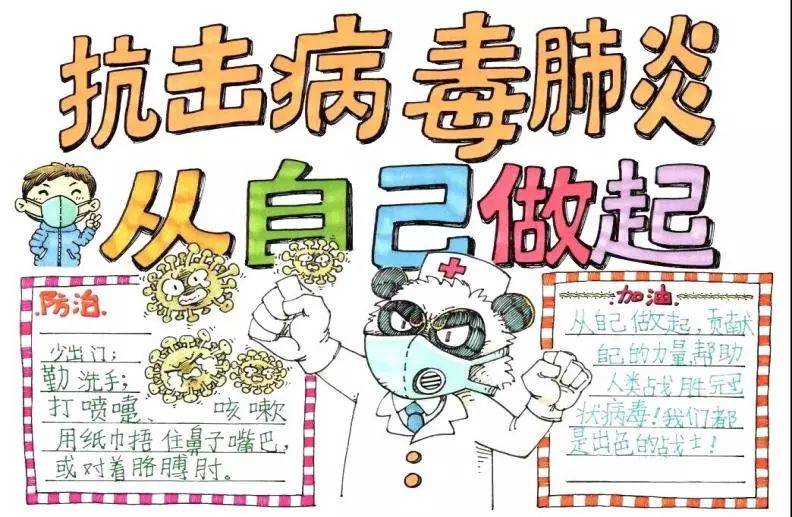 抗击病毒肺炎
从自己做起
防治.
少出门;
勤洗手;
打喷嚏、咳嗽
用纸巾捂住鼻子嘴巴,
或对着胳膊肘.
加油
从自己做起,贡献
自己的力量,帮助
人类战胜冠
状病毒!我们都
是出色的战士!